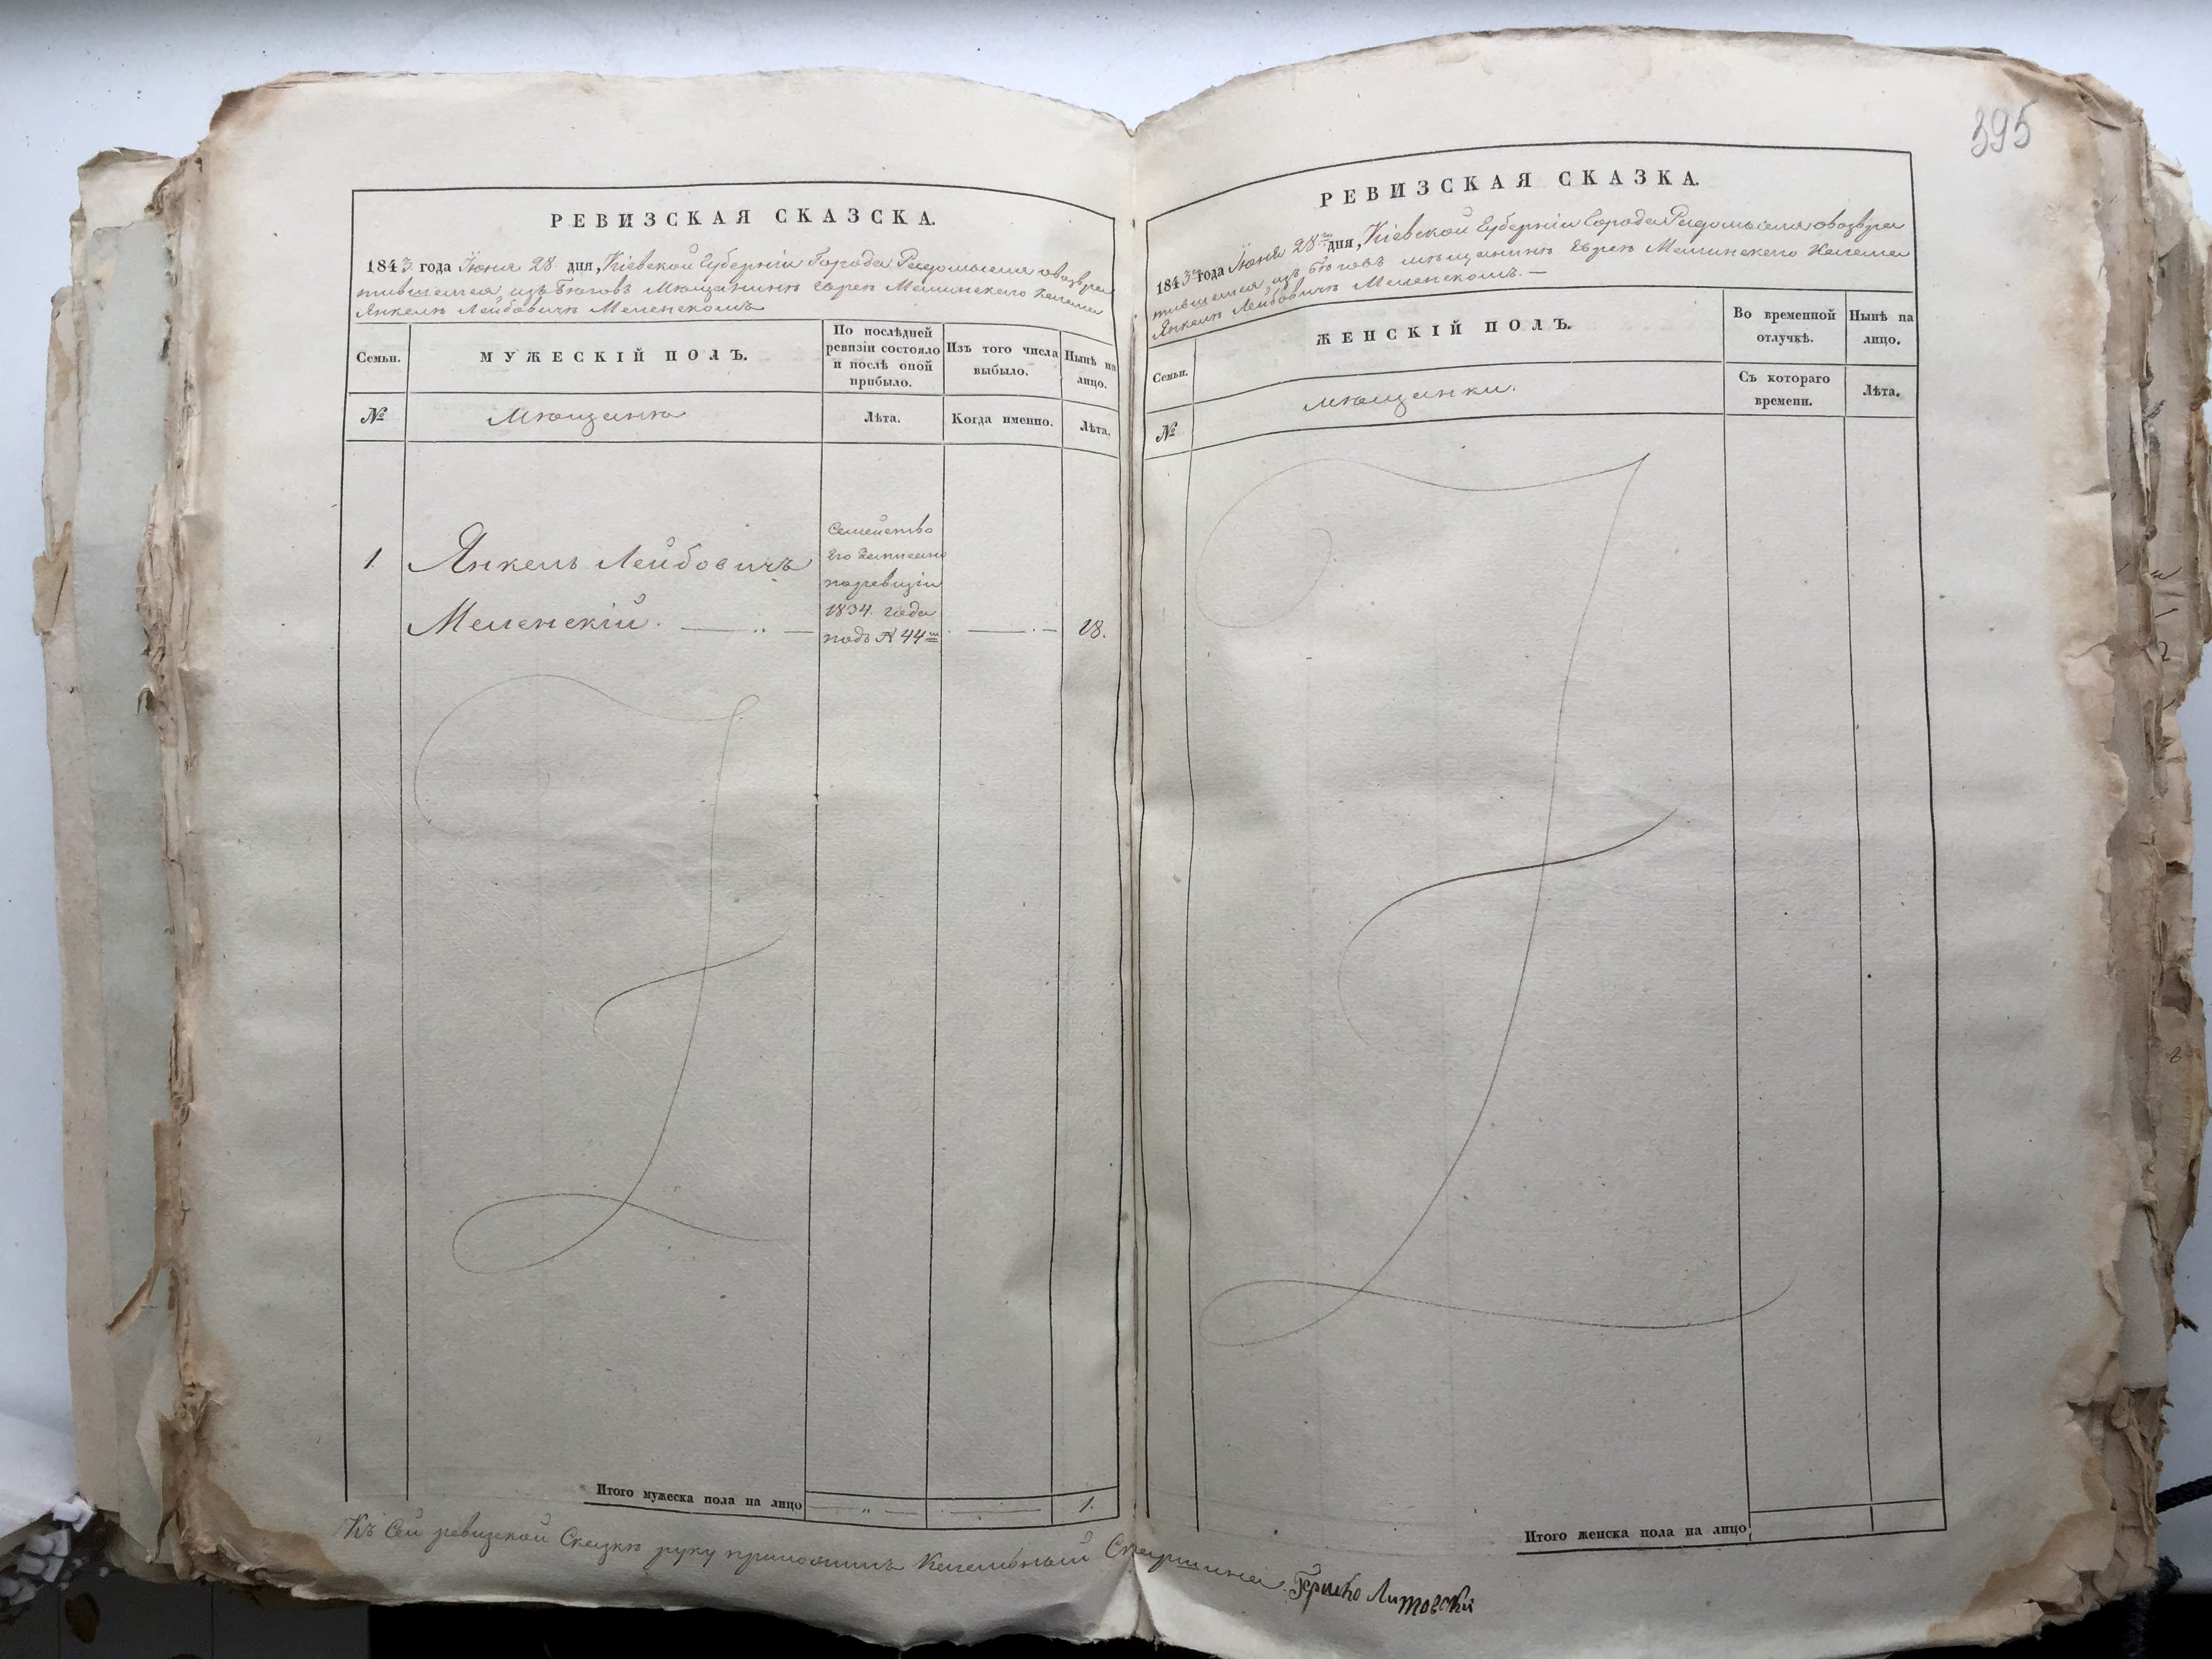 395
РЕВИЗСКАЯ СКАЗСКА.
1843. года Июня 28. дня, Кіевской Губерніи Города Радомысля овозвра
тившемся изъ Бѣговъ Мѣщанинѣ Евреѣ Кагала
Янкелѣ Лейбовичѣ Меленскомъ
Семьи.
МУЖЕСКІЙ ПОЛЪ.
По послѣдней ревизіи состояло и послѣ оной прибыло.
Изъ того числа выбыло.
Нынѣ на лицо.
№
Мѣщане
Лѣта.
Когда именно.
Лѣта.
1. Янкель Лейбовичъ
Меленскій.
Семейство
Его Записано
поревизіи
1834. года
подъ № 44
18.
Итого мужеска пола на лицо
1.
РЕВИЗСКАЯ СКАЗКА.
1843 года Июня 28 дня, Кіевской Губерніи Города Радомысля овозвра
тившемся изъ Бѣговъ мѣщанинѣ Евреѣ Кагала
Янкелѣ Лейбовичѣ Меленскомъ. —
Семьи.
ЖЕНСКІЙ ПОЛЪ.
Во временной отлучкѣ.
Нынѣ на лицо.
№
мѣщанки.
Съ котораго времени.
Лѣта.
Итого женска пола на лицо
Къ Сей ревизской Сказкѣ руку приложилъ Кагальный Старшина Гершко Литовскій